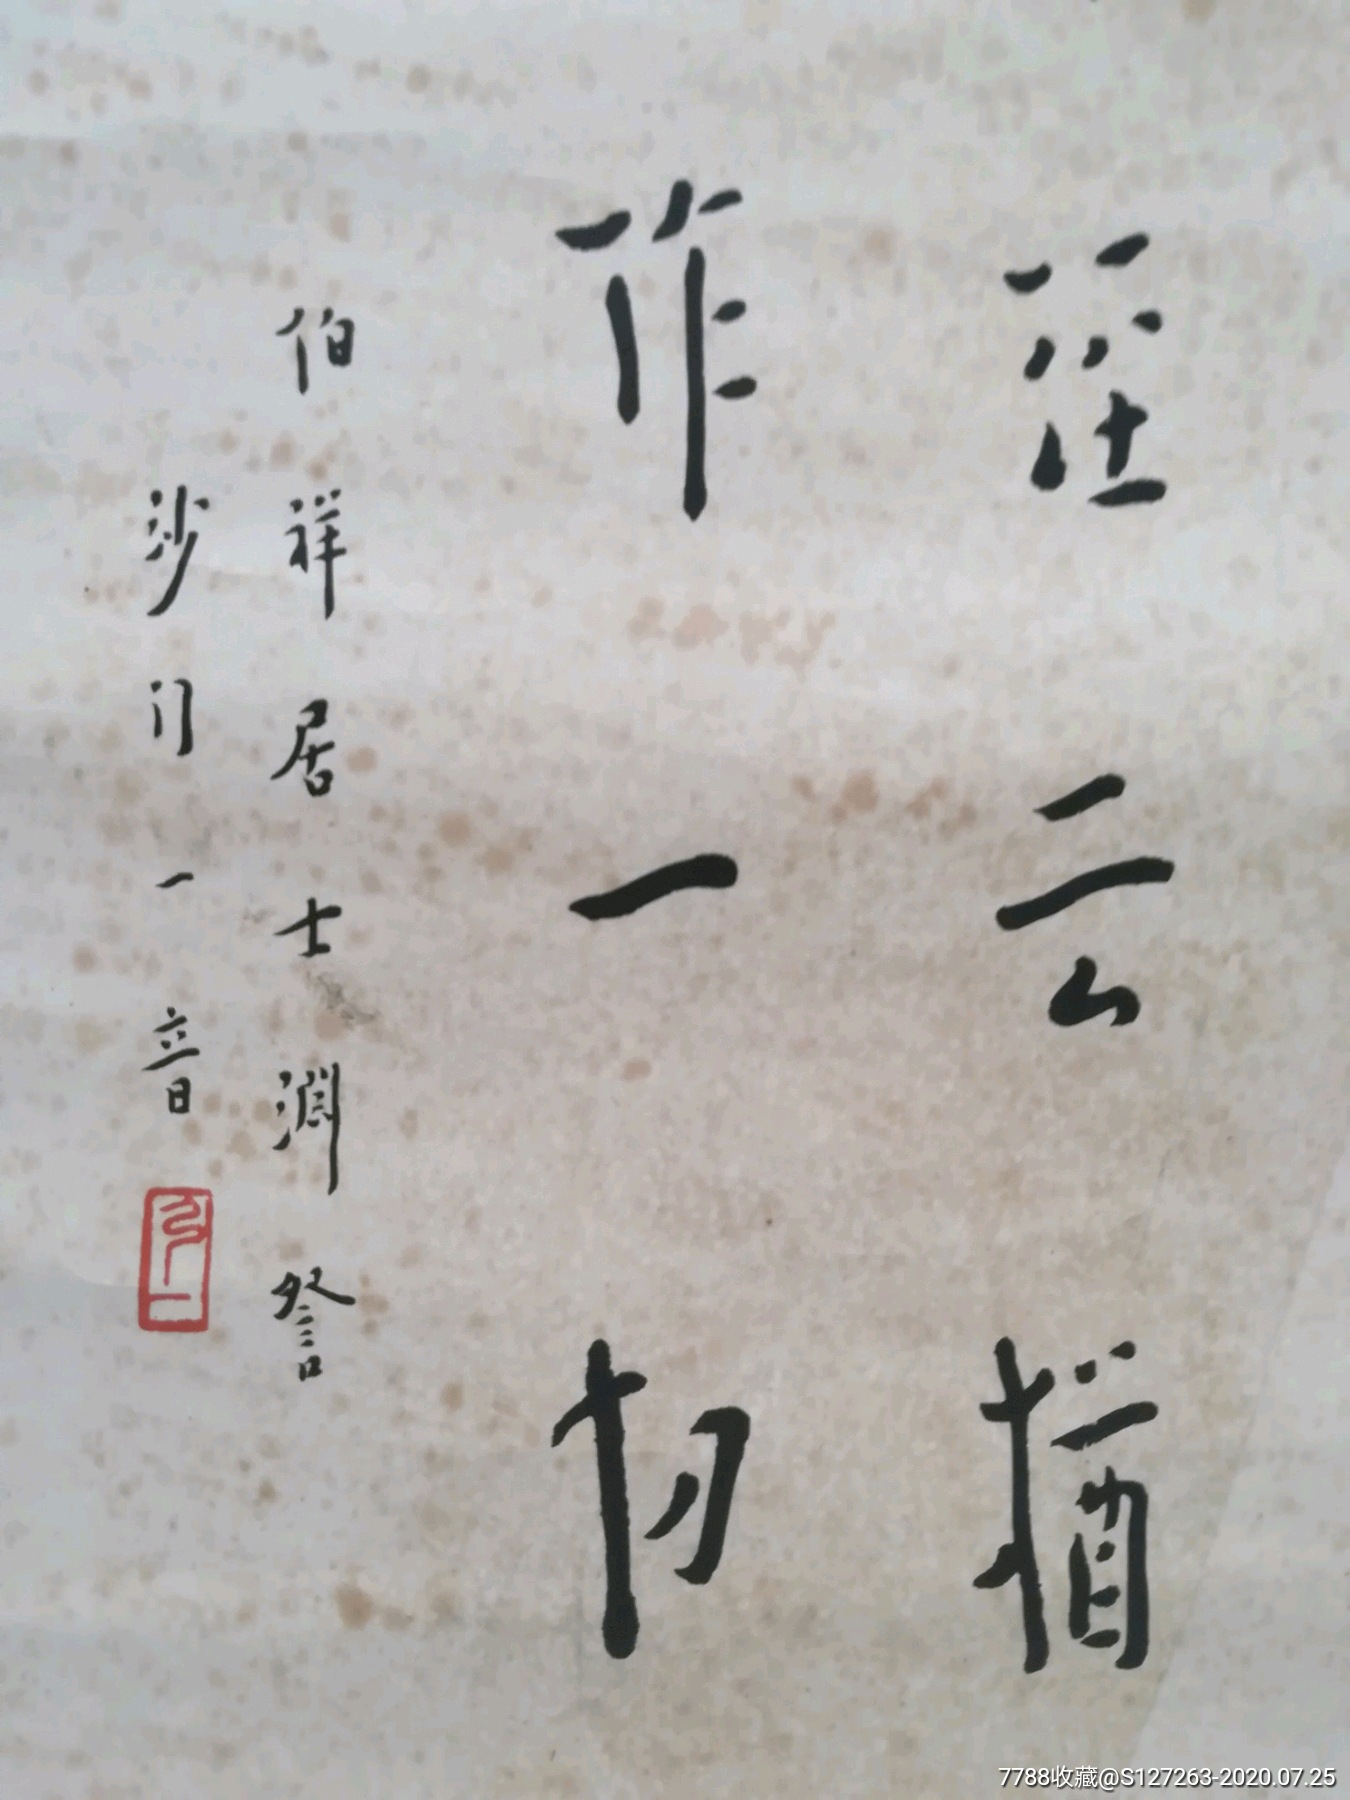 云猶
作一切
伯祥居士淵詧
沙门一音
弘一
7788收藏@S127263-2020.07.25